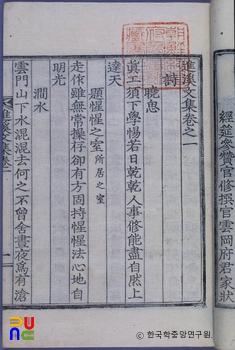 進溪文集卷之一
詩
曉思
眞工須下學惕若日乾乾人事修能盡自然上
達天
題惺惺之室所居之室
走作雖無常操存卻有方固持惺惺法心地自
明光
澗水
雲門山下水混混去何之不曾舍晝夜爲有滄
文集卷一
經筵參贊官修撰官雲岡府君家狀
한국학중앙연구원